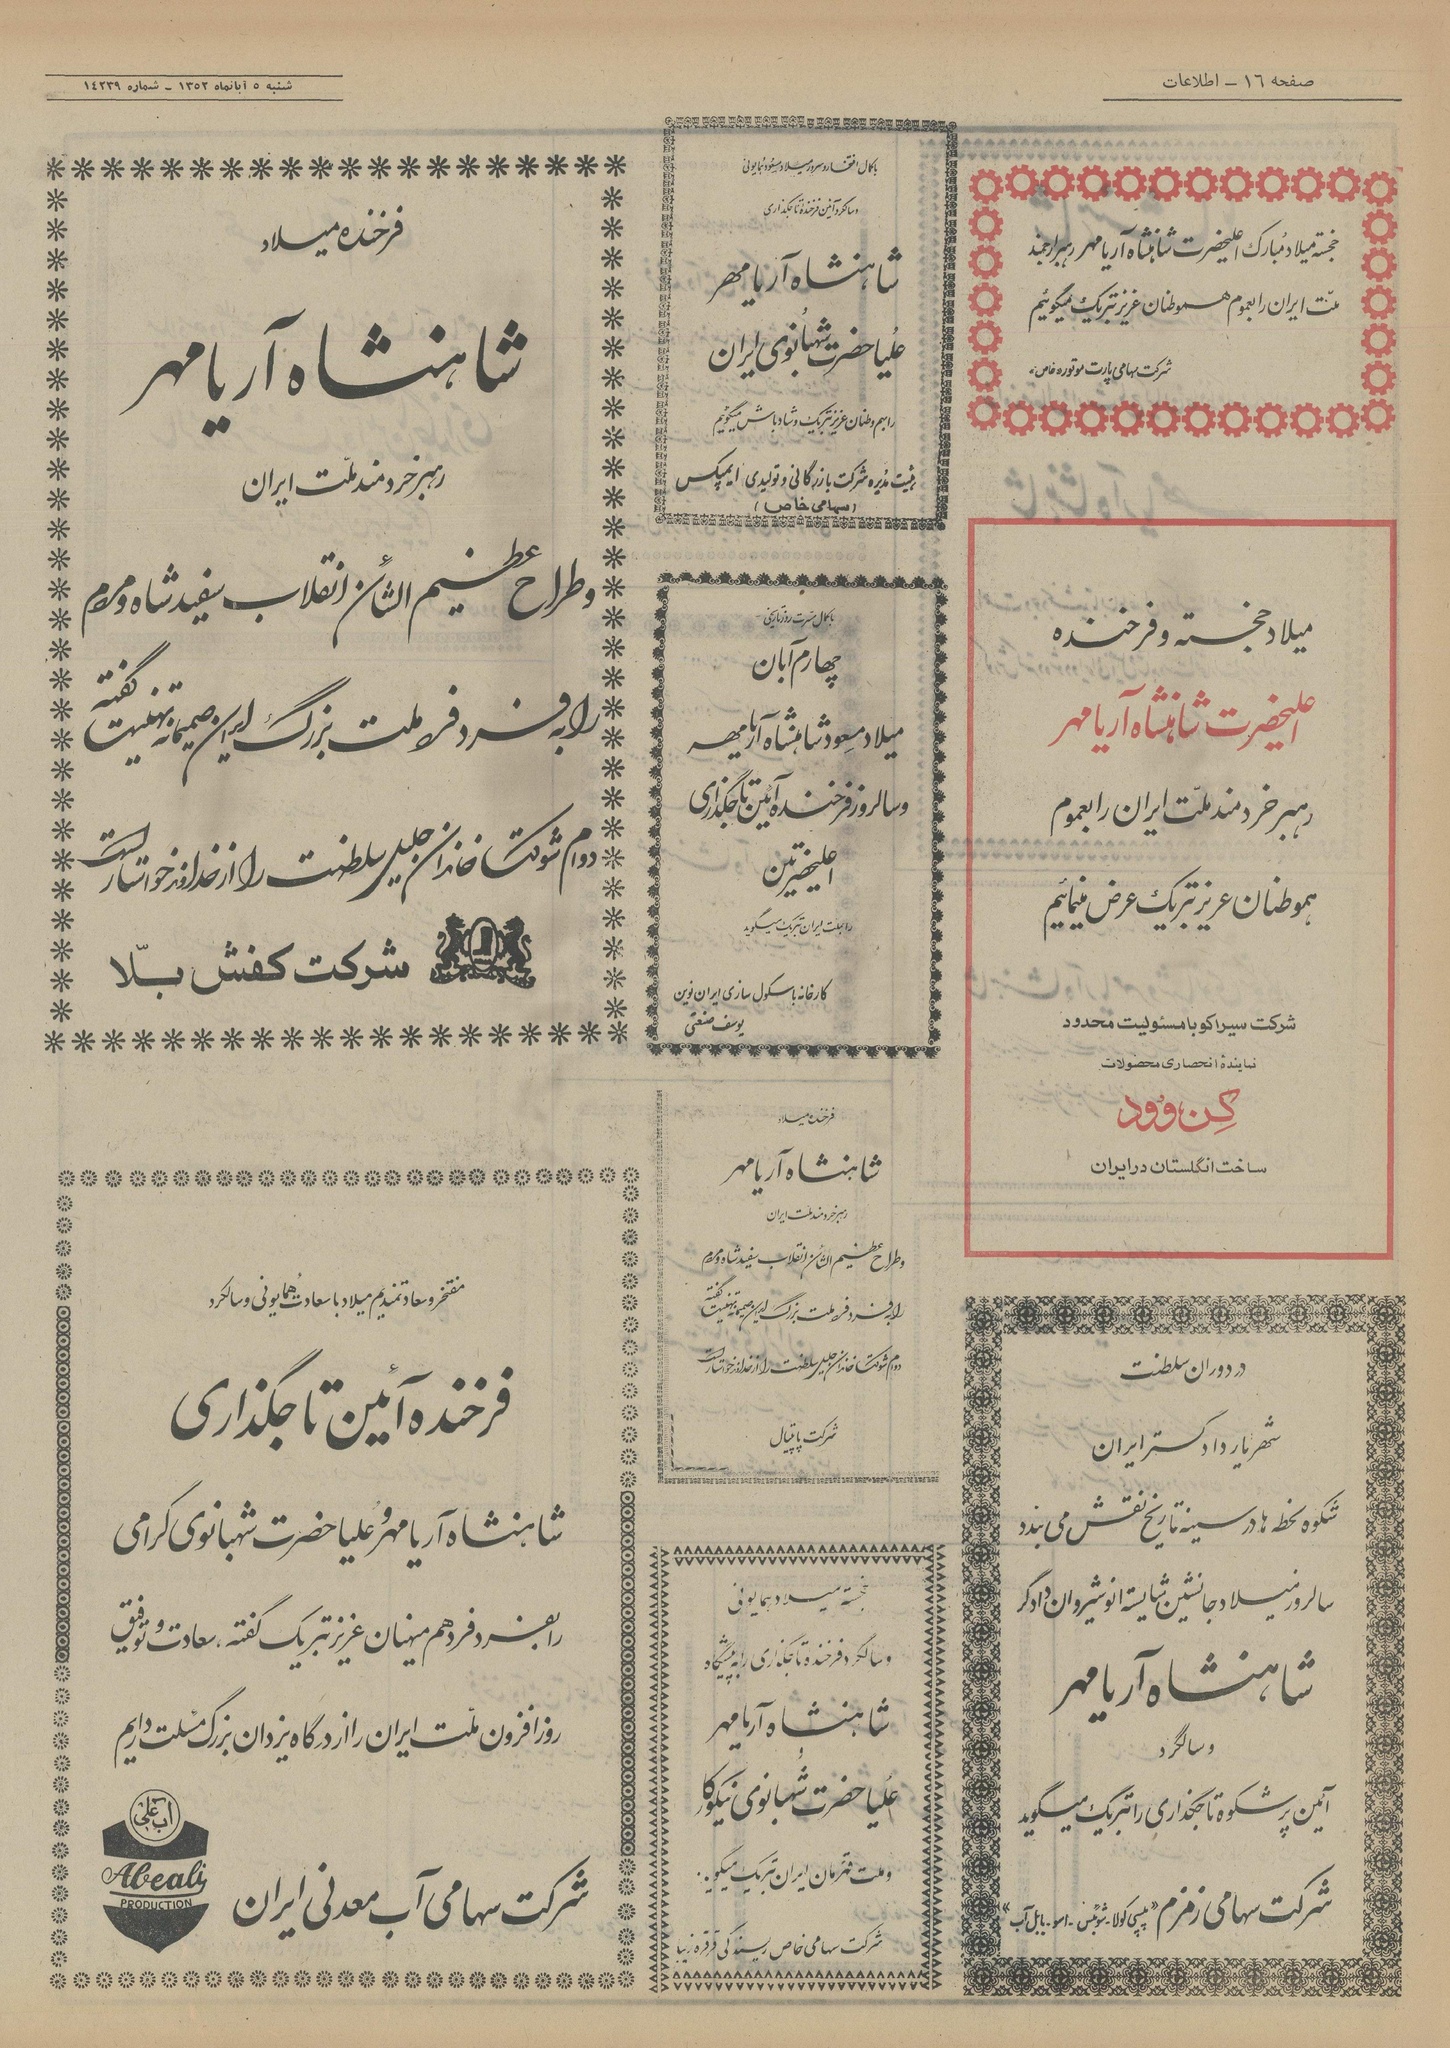 صفحه ۱۶ - اطلاعات
شنبه ۵ آبانماه ۱۳۵۲ - شماره ۱۴۲۳۹
خجسته میلاد مبارک اعلیحضرت شاهنشاه آریامهر رهبر ارجمند
ملت ایران را بعموم هموطنان عزیز تبریک میگوئیم
شرکت سهامی پارت موتور «خاص»
میلاد خجسته و فرخنده
اعلیحضرت شاهنشاه آریامهر
رهبر خردمند ملت ایران را بعموم
هموطنان عزیز تبریک عرض مینمائیم
شرکت سیراکو با مسئولیت محدود
نمایندهٔ انحصاری محصولات
کِن وود
ساخت انگلستان در ایران
در دوران سلطنت
شهریار دادگستر ایران
شکوه لحظه ها در سینه تاریخ نقش می بندد
سالروز میلاد جانشین شایسته انوشیروان دادگر
شاهنشاه آریامهر
و سالگرد
آئین پر شکوه تاجگذاری را تبریک میگوید
شرکت سهامی زمزم «پپسی کولا - شوئپس - اسو - بابل آب»
با کمال افتخار و سرور میلاد مسعود همایونی
و سالگرد آئین فرخنده تاجگذاری
شاهنشاه آریامهر
علیاحضرت شهبانوی ایران
را بهم وطنان عزیز تبریک و شادباش میگوئیم
هیئت مدیره شرکت بازرگانی و تولیدی ایمپکس
(سهامی خاص)
با کمال مسرت روز تاریخی
چهارم آبان
میلاد مسعود شاهنشاه آریامهر
و سالروز فرخنده آئین تاجگذاری
اعلیحضرتین
را بملت ایران تبریک میگوید
کارخانه باسکول سازی ایران نوین
یوسف صنعتی
فرخنده میلاد
شاهنشاه آریامهر
رهبر خردمند ملت ایران
و طراح عظیم الشأن انقلاب سفید شاه و مردم
را به فرد فرد ملت بزرگ ایران صمیمانه تهنیت گفته
دوام شوکت خاندان جلیل سلطنت را از خداوند خواستار است
شرکت پاپتیال
خجسته میلاد همایونی
و سالگرد فرخنده تاجگذاری را به پیشگاه
شاهنشاه آریامهر
علیاحضرت شهبانوی نیکوکار
و ملت قهرمان ایران تبریک میگوید
شرکت سهامی خاص ریسندگی قرقره زیبا
فرخنده میلاد
شاهنشاه آریامهر
رهبر خردمند ملت ایران
و طراح عظیم الشأن انقلاب سفید شاه و مردم
را به فرد فرد ملت بزرگ ایران صمیمانه تهنیت گفته
دوام شوکت خاندان جلیل سلطنت را از خداوند خواستار است
شرکت کفش بلّا
مفتخر و سعادتمندیم میلاد با سعادت همایونی و سالگرد
فرخنده آئین تاجگذاری
شاهنشاه آریامهر و علیاحضرت شهبانوی گرامی
را بفرد فرد هم میهنان عزیز تبریک گفته، سعادت و توفیق
روز افزون ملت ایران را از درگاه یزدان بزرگ مسئلت داریم
آب علی
Abeali
PRODUCTION
شرکت سهامی آب معدنی ایران